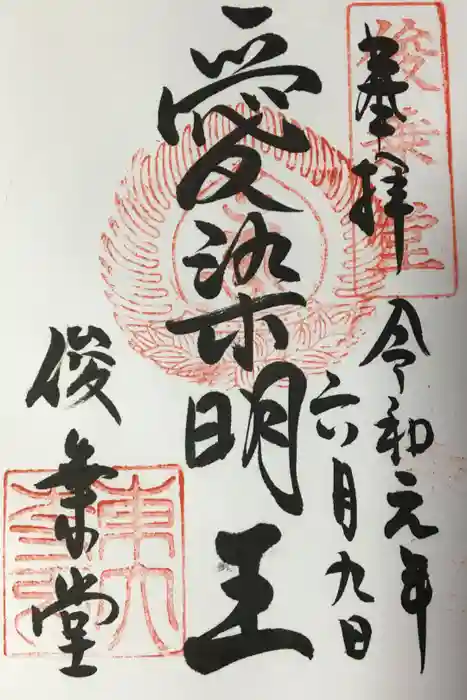 奉拝
令和元年
六月九日
愛染明王
俊乗堂
俊乗堂
東大